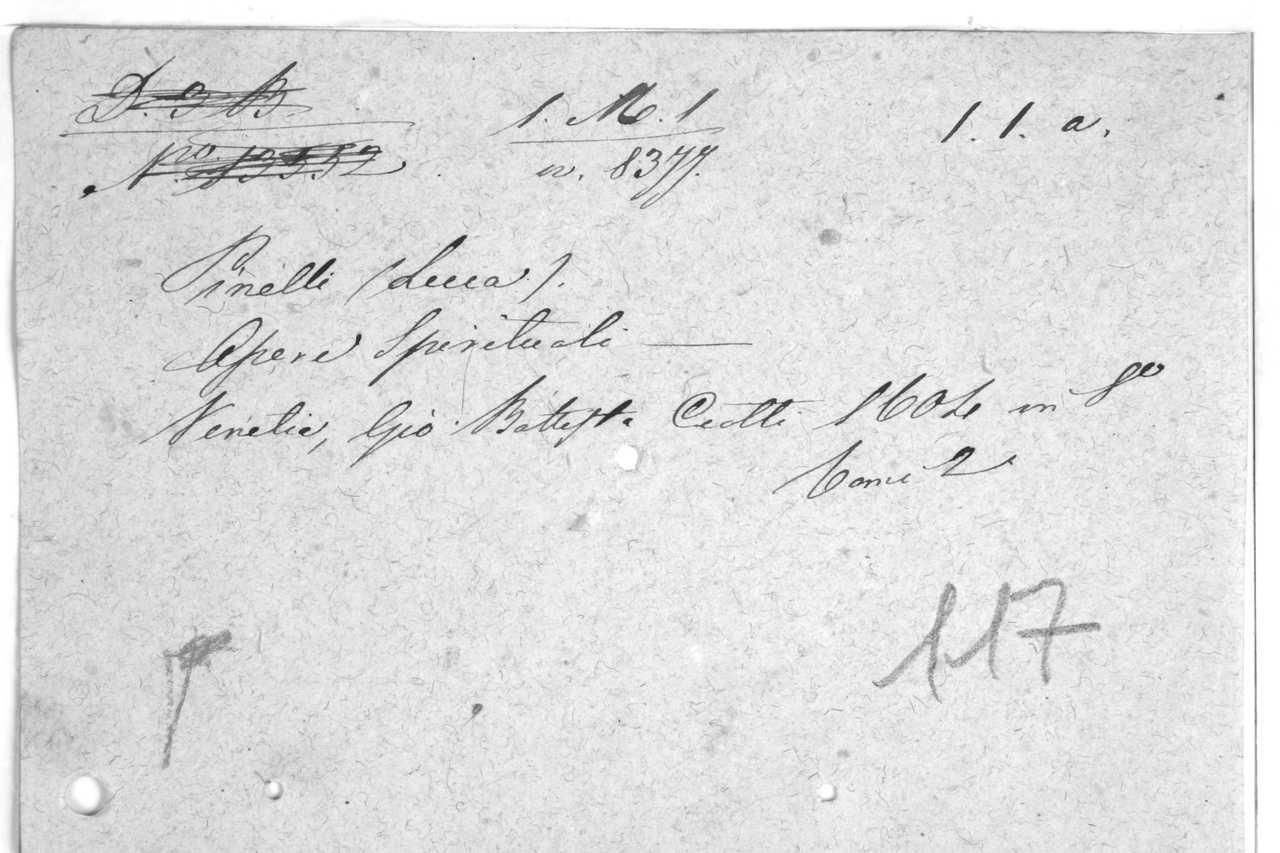 D. 3 B. 1. M. 1 1. 1. a.
N.ro 13552 n. 8377.
Pinelli (Luca).
Opere Spirituali —
Venetia, Gio Battista Ciotti 1604 in 8º
Tomi 2
117